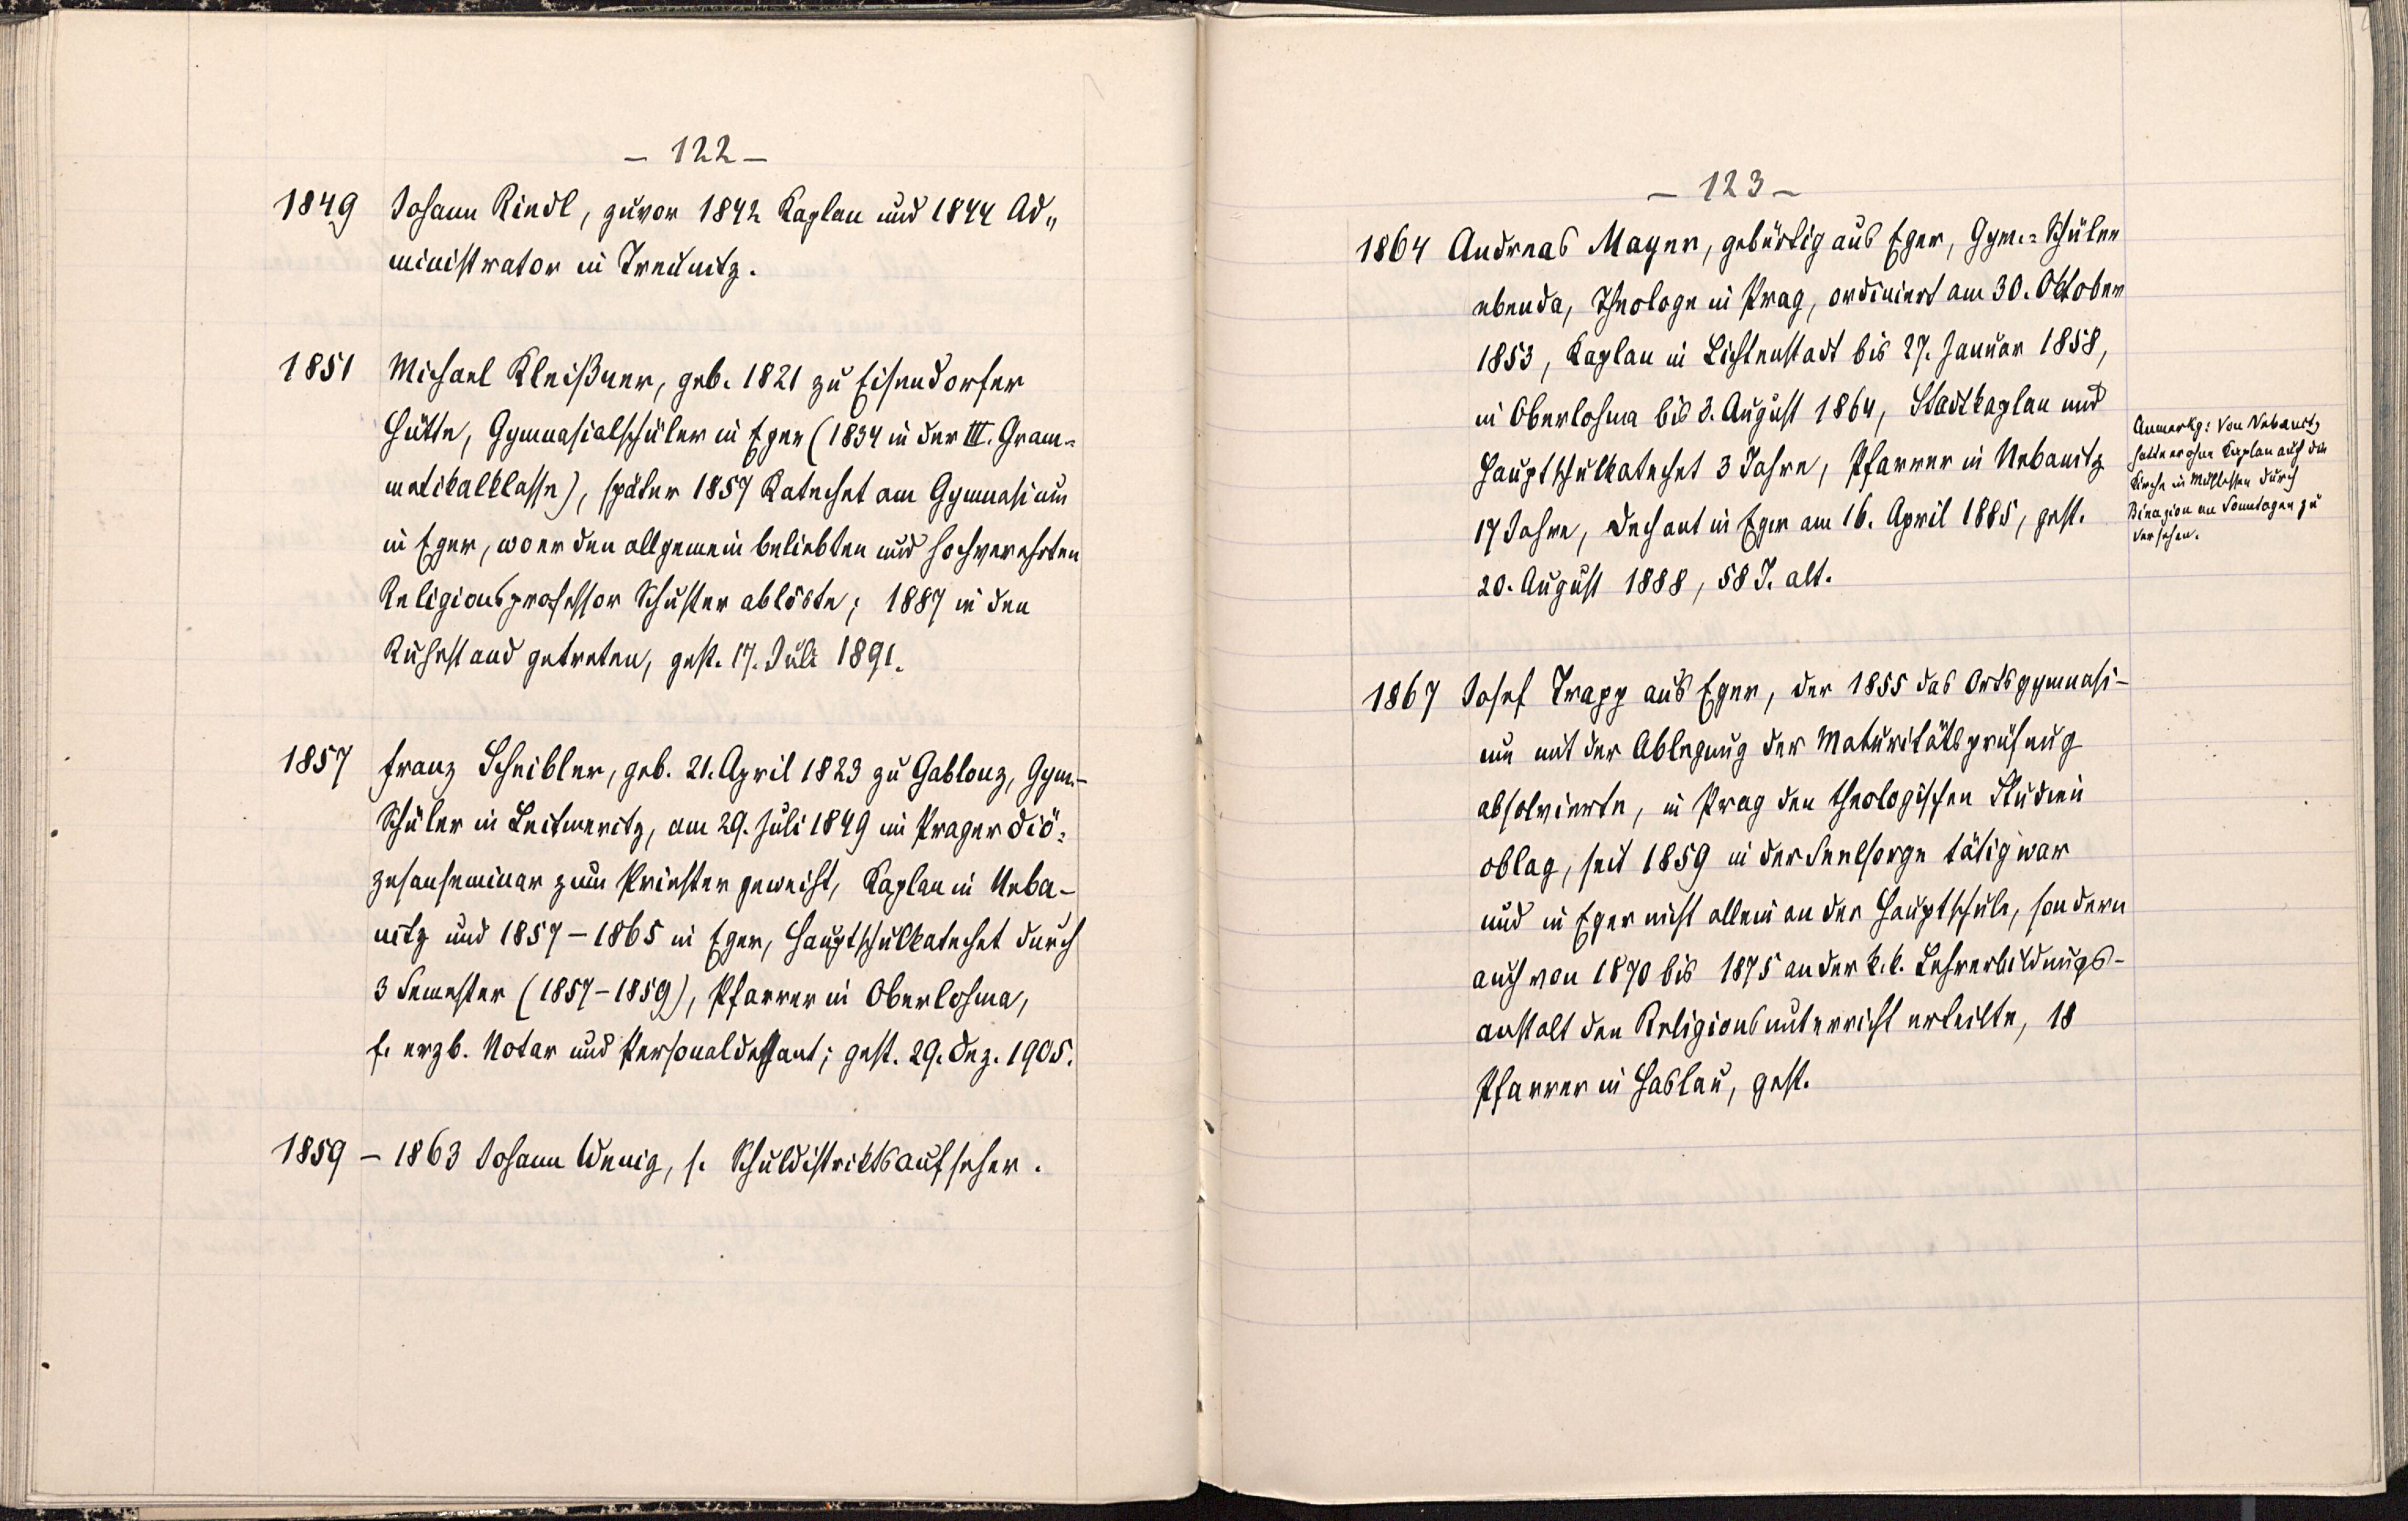 – 122 –
1849 Johann Riedl, zuvor 1842 Kaplan und 1844 Ad„
ministrator in Treunitz.
1851 Michael Kleißner, geb. 1821 zu Eisendorfer
Hütte, Gymnasialschüler in Eger (1834 in der III. Gram-
matikalklasse), später 1857 Katechet am Gymnasium
in Eger, wo er den allgemein beliebten und hochverehrten
Religionsprofessor Schuster ablöste; 1887 in den
Ruhestand getreten, gest. 17. Juli 1891.
1857 Franz Scheibler, geb. 21. April 1823 zu Gablonz, Gym.-
Schüler in Leitmeritz, am 29. Juli 1849 im Prager Diö-
zesanseminar zum Priester geweiht, Kaplan in Neba-
nitz und 1857–1865 in Eger, Hauptschulkatechet durch
3 Semester (1857–1859), Pfarrer in Oberlohma,
f. erzb. Notar und Personaldechant; gest. 29. Dez. 1905.
1859 – 1863 Johann Wenig, s. Schuldistriktsaufseher.
– 123 –
1864 Andreas Mayer, gebürtig aus Eger, Gym.-Schüler
ebenda, Theologe in Prag, ordiniert am 30. Oktober
1853, Kaplan in Lichtenstadt bis 27. Januar 1858,
in Oberlohma bis 3. August 1864, Stadtkaplan und
Hauptschulkatechet 3 Jahre, Pfarrer in Nebanitz
17 Jahre, Dechant in Eger am 16. April 1885, gest.
20. August 1888, 58 J. alt.
Anmerkg: Von Nebanitz
hatte er ohne Kaplan auch die
Kirche in Mühlessen durch
Binazion an Sonntagen zu
versehen.
1867 Josef Trapp aus Eger, der 1855 das Ortsgymnasi-
um mit der Ablegung der Maturitätsprüfung
absolvierte, in Prag den theologischen Studien
oblag, seit 1859 in der Seelsorge tätig war
und in Eger nicht allein an der Hauptschule, sondern
auch von 1870 bis 1875 an der k.k. Lehrerbildungs-
anstalt den Religionsunterricht erteilte, 18
Pfarrer in Haslau, gest.